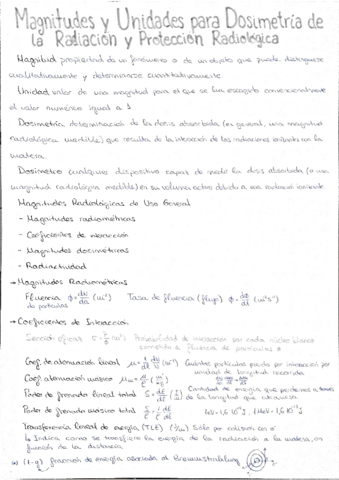 Magnitudes y Unidades para Dosimetría de
la Radiación y Protección Radiológica
Magnitud propiedad de un fenómeno o de un objeto que puede distinguirse
cualitativamente y determinarse cuantitativamente.
Unidad valor de una magnitud para el que se ha escogido convencionalmente
el valor numérico igual a 1
Dosimetría determinación de la dosis absorbida (en general, una magnitud
radiológica medible) que resulta de la interacción de las radiaciones ionizantes con la
materia.
Dosímetro cualquier dispositivo capaz de medir la dosis absorbida (o una
magnitud radiológica medible) en su volumen activo debido a una radiación ionizante
Magnitudes Radiológicas de Uso General
- Magnitudes radiométricas
- Coeficientes de interacción
- Magnitudes dosimétricas
- Radiactividad
→ Magnitudes Radiométricas
Fluencia ϕ = (m⁻²) Tasa de fluencia (flujo)
de partículas
→ Coeficientes de Interacción
Sección eficaz Probabilidad de interacción por cada núcleo blanco
sometido a fluencia de partículas
Coef. de atenuación lineal (m⁻¹) Cuántas partículas pierdo por interacción por
unidad de longitud recorrida
Coef. atenuación másico
Poder de frenado lineal total Cantidad de energía que perdemos a través
de la longitud que atraviesa
Poder de frenado másico total
Transferencia lineal de energía (TLE) Sólo por colisión en
↳ Indica como se transfiere la energía de la radiación a la materia, en
función de la distancia
(1-g) fracción de energía asociada al Bremsstrahlung